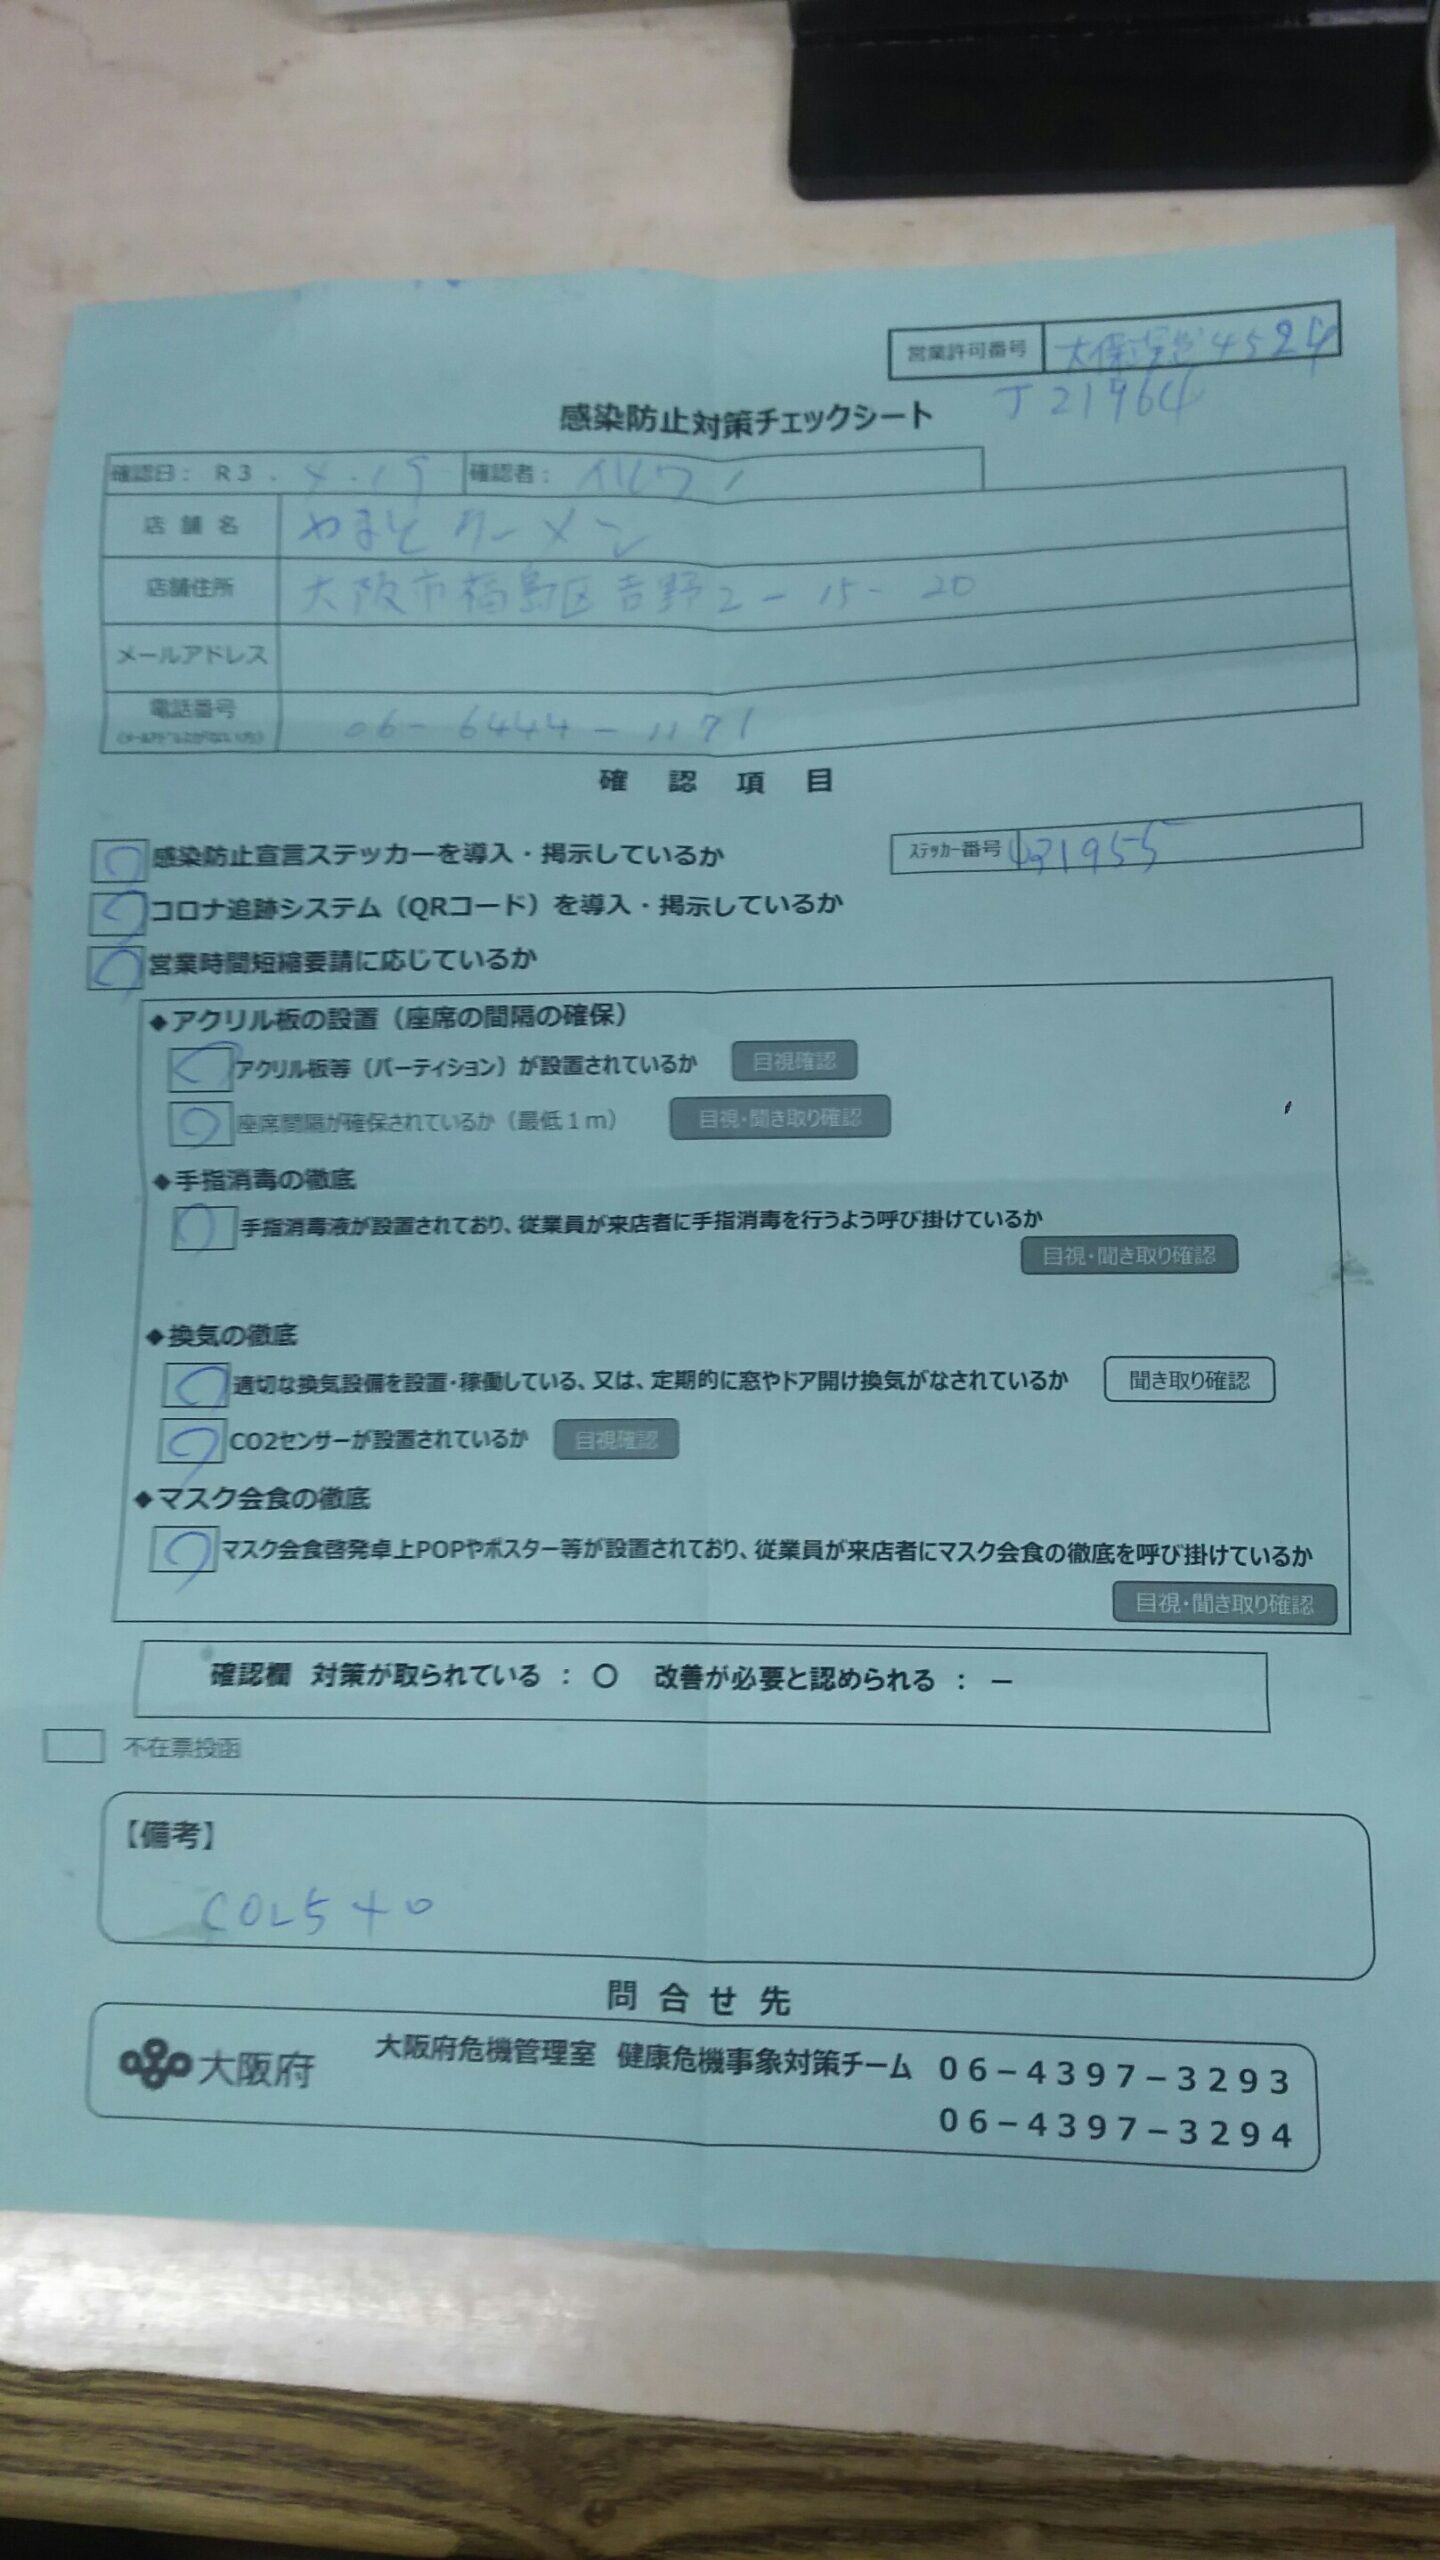 営業許可番号 4524
J21964
感染防止対策チェックシート
確認日： R3．4.19 確認者：
店舗名 やまとラーメン
店舗住所 大阪市福島区吉野2-15-20
メールアドレス
電話番号 06-6444-1171
確認項目
感染防止宣言ステッカーを導入・掲示しているか
ｽﾃｯｶｰ番号
コロナ追跡システム（QRコード）を導入・掲示しているか
営業時間短縮要請に応じているか
◆アクリル板の設置（座席の間隔の確保）
アクリル板等（パーティション）が設置されているか 目視確認
座席間隔が確保されているか（最低１ｍ） 目視・聞き取り確認
◆手指消毒の徹底
手指消毒液が設置されており、従業員が来店者に手指消毒を行うよう呼び掛けているか
目視・聞き取り確認
◆換気の徹底
適切な換気設備を設置・稼働している、又は、定期的に窓やドア開け換気がなされているか 聞き取り確認
CO2センサーが設置されているか 目視確認
◆マスク会食の徹底
マスク会食啓発卓上POPやポスター等が設置されており、従業員が来店者にマスク会食の徹底を呼び掛けているか
目視・聞き取り確認
確認欄 対策が取られている ： ○ 改善が必要と認められる ： －
不在票投函
【備考】
CO2540
問合せ先
大阪府 大阪府危機管理室 健康危機事象対策チーム ０６－４３９７－３２９３
０６－４３９７－３２９４